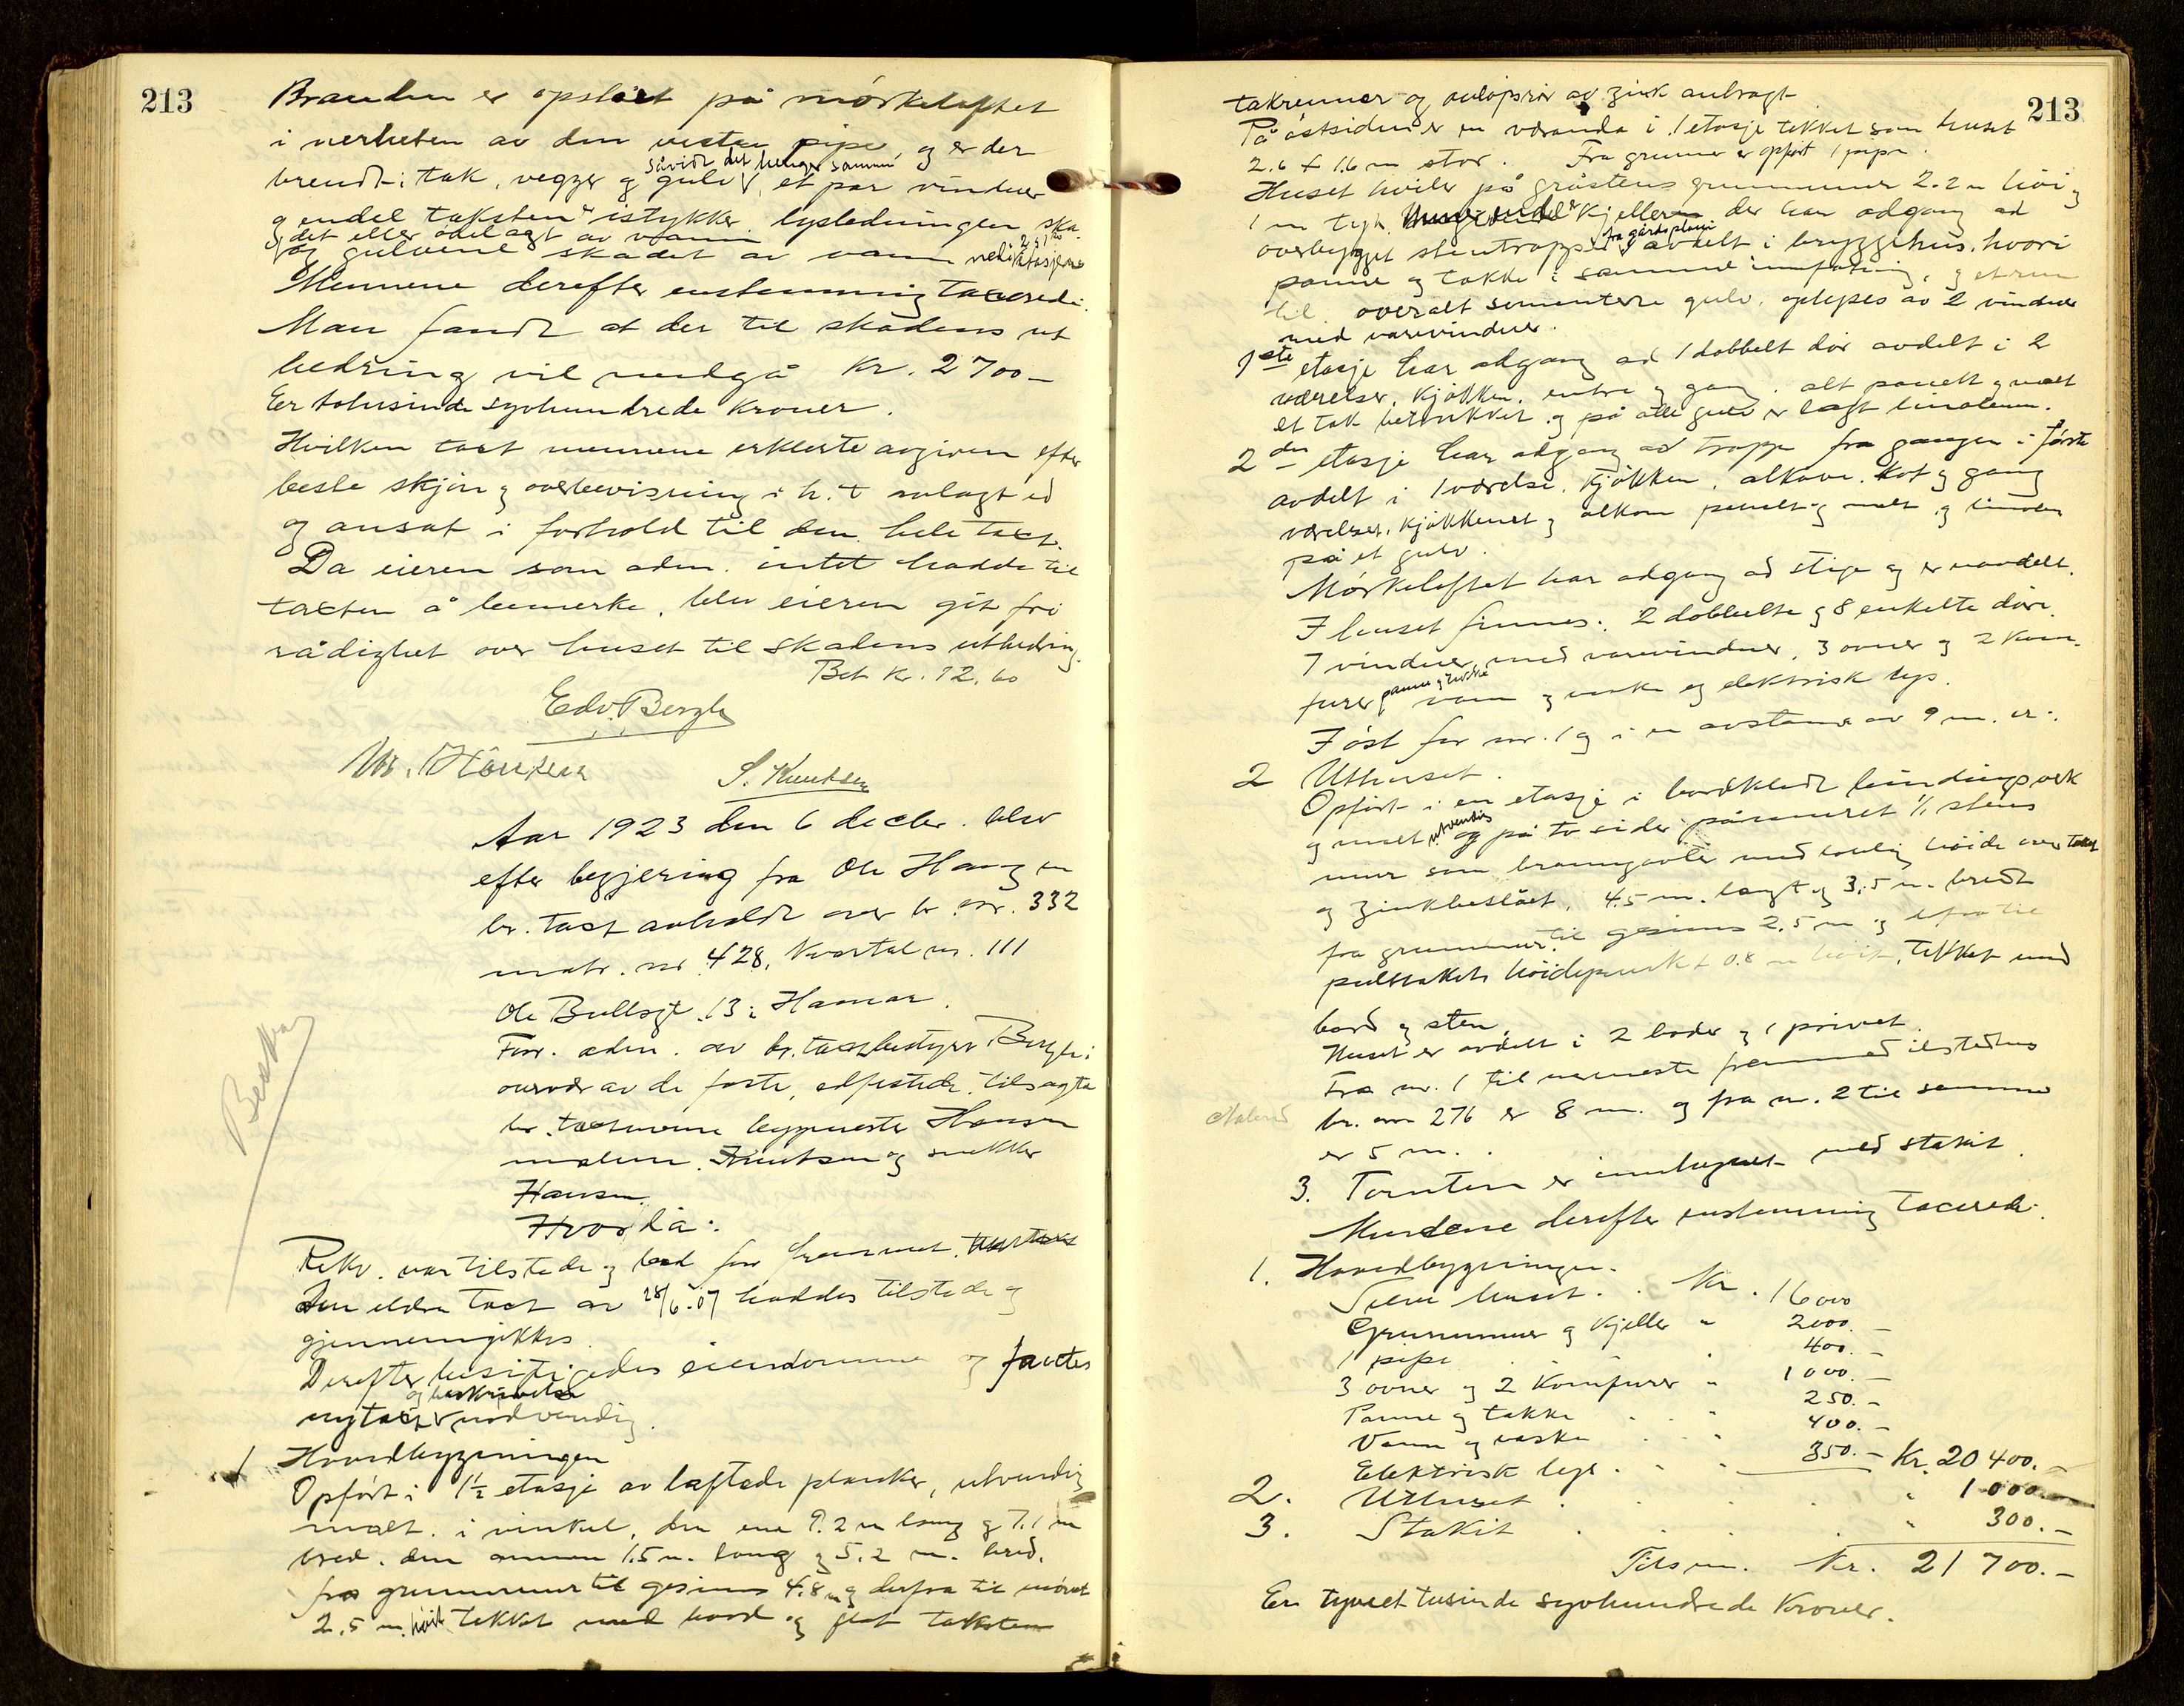 213
Branden er opstået på mörkeloftet
i nerheten av den vestre pipe, og er der
såvidt det henger sammen
brendt i tak, vegger og gulv, et par vinduer
og endel taksten istykker. lysledningen ska-
det eller ödelagt av vann
og gulvene skadet av vann ned i 2 og 1ste etasjene
Mennene derefter enstemmig taxerede:
Man fandt at der til skadens ut
bedring vil medgå Kr. 2700 –
Er totusinde syvhundrede Kroner.
Hvilken taxt mennene erklerte avgiven efter
beste skjön og overbevisning i h. t avlagt ed
og ansat i forhold til den hele taxt.
Da eieren som adm. intet hadde til
taxten å bemerke, blev eieren git fri
rådighet over huset til skadens utbedring.
Bet Kr. 12.60
Edv. Bergh
M. Hansen
S. Knutsen
Aar 1923 den 6 decbr. blev
efter begjering fra Ole Haug en
br. taxt avholdt over br. nr. 332
matr. nr 428, Kvartal nr. 111
Ole Bullsgt. 13 i Hamar.
Forr. adm. av br. taxtbestyrer Bergh i
overvær av de faste, edfestede, tilsagte
br. taxtmenn byggmester Hansen
maleren Knutsen og snekker
Hansen.
Hvorda:
Rekv. var tilstede og bad for fremmet.
Den eldre taxt av 28/6-07 haddes tilstede og
gjennemgikkes
Derefter besigtigedes eiendommen og fantes
og beskrivelse
ny taxt nödvendig.
Besk
1 Hovedbygningen
Opfört i 1½ etasje av laftede planker, utvendig
malt. i vinkel, den ene 9.2 m lang og 7.1 m
bred. den annen 1.5 m. lang og 5.2 m. bred.
fra grunnmur til gesims 4.8 m og derfra til mönet
2.5 m. höit tekket med bord og flat taksten
213
takrenner og avlöpsrör av zink anbragt
På östsiden er en veranda i 1 etasje tekket som huset
2.6 x 1.6 m stor. Fra grunnen er opfört 1 pipe.
Huset hviler på gråstens grunnmur 2.2 m höi og
1 m tyk. Kjelleren der har adgang ad
fra gårdsplassen
overbygget stentrapp avdelt i bryggehus, hvori
panne og takke i samme innfatning, og et rum
til overalt sementert gulv, oplyses av 2 vinduer
med varevinduer.
1ste etasje har adgang ad 1 dobbelt dör avdelt i 2
værelser, kjökken, entre og gang. alt panelt og malt
et tak betrukket og på alle gulv er lagt linoleum.
2den etasje har adgang ad trapp fra gangen i förste
avdelt i 1 værelse, kjökken, alkove, kot og gang
værelset, kjökkenet og alkove panelt og malt og linoleum
på et gulv.
Mörkeloftet har adgang ad stige og er uavdelt.
I huset finnes: 2 dobbelte og 8 enkelte döre.
7 vinduer med varevinduer, 3 ovner og 2 kom-
panne og takke
furer vann og vaske og elektrisk lys.
I öst for nr. 1 og i en avstand av 9 m. er:
2 Uthuset.
Opfört i en etasje i bordkledt bindingsverk
utvendig
og malt og på to sider påmuret 1/1 stens
mur som branngavler med lovlig höide over taket
og zinkbeslået, 4.5 m. langt og 3.5 m. bredt
fra grunnmur til gesims 2.5 m og derfra til
pulttakets höidepunkt 0.8 m höit, tekket med
bord og sten.
Huset er avdelt i 2 boder og 1 privet.
Fra nr. 1 til nermeste fremmed ildsted hus
br. nr 276 er 8 m. og fra nr. 2 til samme
er 5 m.
3. Tomten er innhegnet med stakit.
Mendene derefter enstemmig taxerede:
1. Hovedbygningen.
Selve huset . . Kr. 16000
Grunnmur og kjeller " 2000. –
1 pipe . . 400. –
3 ovner og 2 Komfurer " 1000. –
Panne og takke . . " 250. –
Vann og vaske . . " 400. –
Elektrisk lys . . " 350. – Kr. 20400. –
2. Uthuset . . . . " 1000. –
3. Stakit . . . . " 300. –
Tilsm. Kr. 21700. –
Er tyveet tusinde syvhundrede Kroner.